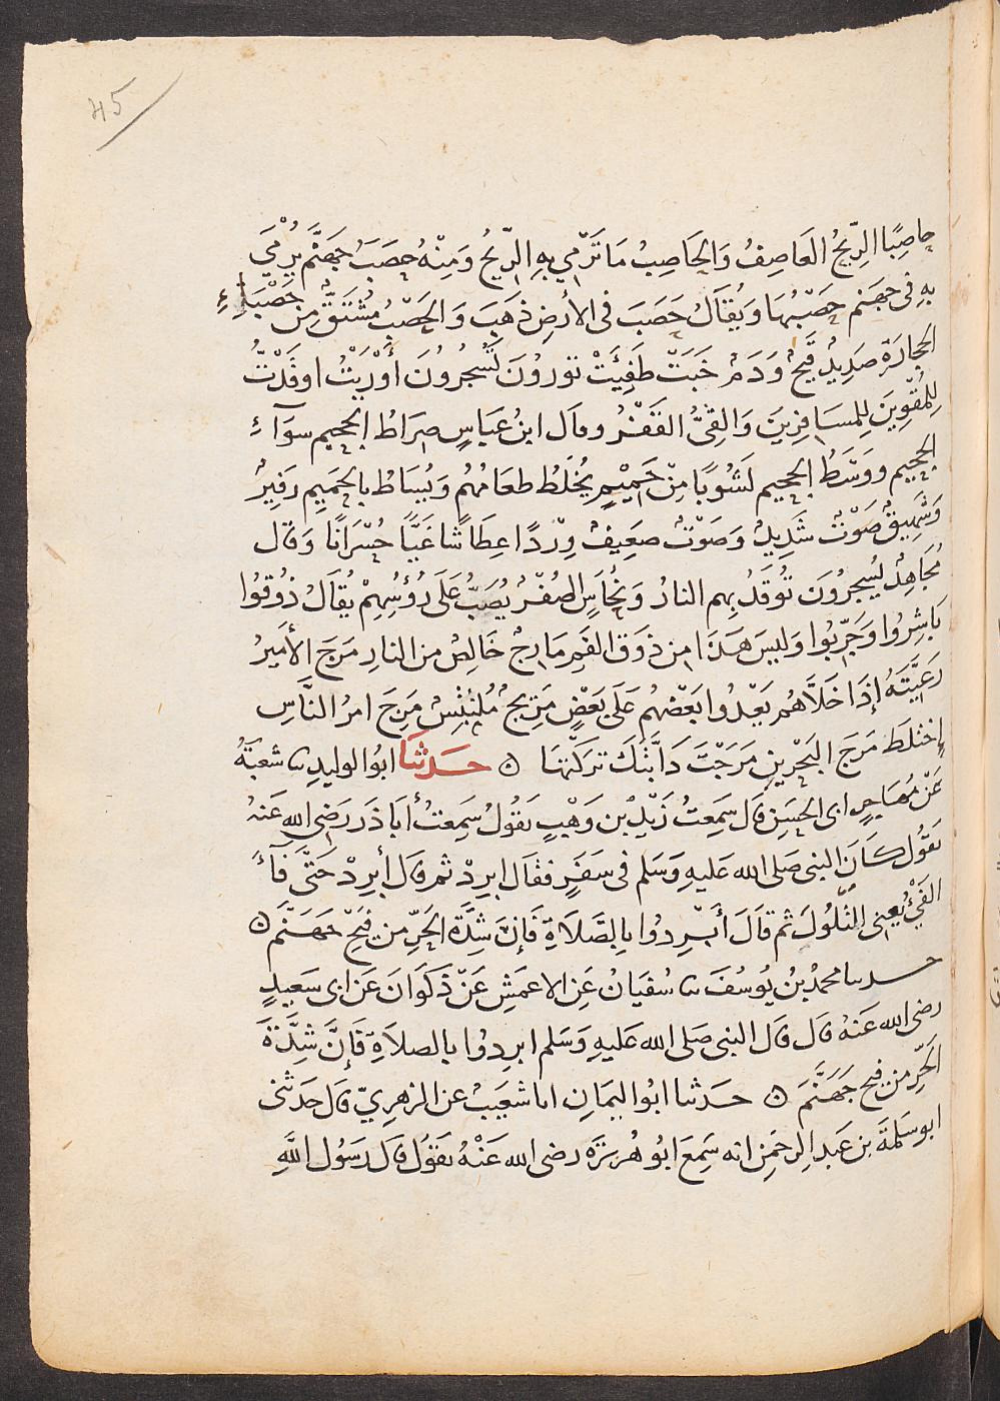 45
حاصِبًا الرِّيحُ العَاصِفُ وَالحَاصِبُ مَا تَرْمِي بِهِ الرِّيحُ وَمِنْهُ حَصَبُ جَهَنَّمَ يُرْمَى
بِهِ فى جَهَنم حَصَبُهَا وَيُقَالُ حَصَبَ فى الأَرضِ ذَهَبَ وَالحَصَبُ مُشْتَقٌّ مِنْ حَصْبَاءِ
الحجَارَة صَدِيدٌ قَيْحٌ وَدَمٌ خَبَتْ طَفِئَتْ تورُونَ تَسْتَخْرِجُونَ أَوْرَيْتُ اوقَدْتُ
لِلمُقْوِينَ لِلمسَافِرِينَ وَالقِىُّ القَفْرُ وقال ابن عَباسٍ صِرَاطُ الجحِيم سوَآءُ
الجحِيم ووَسَطُ الجحِيم لَشَوْبًا مِنْ حَمِيْمٍ يُخْلَطُ طعَامُهُم وَيُسَاطُ بالحَمِيمِ زفِيرٌ
وَشَهِيقٌ صَوْتٌ شَدِيدٌ وَصَوْتٌ ضَعِيفٌ وِرْدًا عِطَاشًا غَيًّا خُسْرَانًا وَقَال
مُجَاهِدٌ يُسجرُونَ تُوقَدُ بِهِم النارُ وَنُحَاسٍ الصُفْرُ يُصَبُّ عَلَى رُؤُسِهِمْ يقَالُ ذُوقُوا
بَاشِرُوا وَجَرِّبُوا وَلَيسَ هَذَا مِن ذَوقِ الفَمِ مَارِجٌ خَالِصٌ مِن النارِ مَرَجَ الأَمِيرُ
رَعِيَّتَهُ إذَا خَلَّاهُم يَعْدُوا بَعْضُهُم عَلَى بَعْضٍ مَرِيجٌ مُلْتَبِسٌ مَرِجَ امرُ النَّاسِ
إخْتلَطَ مَرَجَ البَحْرَينِ مَرَجْتَ دَابَّتَكَ تركْتَهَا ۝ حَدثنَا ابوُ الوليدِ ثنا شعبَةُ
عَنْ مُهَاجِرٍ ابى الحسَنِ قال سَمِعتُ زَيْدَ بْن وَهْبٍ يقولُ سَمِعتُ أبَا ذَر رَضِى الله عَنهُ
يقوُل كَانَ النبى صَلى الله عَليهِ وَسَلم فى سَفَرٍ فقَال ابرِدْ ثم قال أبرِدْ حَتَّى فَآءَ
الفَىْءُ يَعنِى التُّلُولَ ثم قَالَ أَبْرِدُوا بالصَّلَاةِ فَإنَّ شِدَّةَ الحَرِّ مِن فَيْحِ جَهَنَّم ۝
حدثنا محمدُ بْنُ يُوسُفَ ثنا سُفيَانُ عَنِ الاعمَشِ عَنْ ذَكوَانَ عَن ابى سَعِيدٍ
رضى الله عَنهُ قال قال النبى صَلى الله عَليهِ وَسَلم ابرِدُوا بالصلَاةِ فَإنَّ شِدَّةَ
الحَرِّ مِن فيح جَهَنَّمَ ۝ حَدثنا ابوُ اليَمَانِ انا شعَيبٌ عَن الزهرِيّ قال حَدثنى
ابو سَلمَةَ بن عَبدِ الرحمَنِ انه سَمِعَ ابُو هُريرَةَ رضى الله عَنْهُ يَقوُل قال رَسُول اللهِ